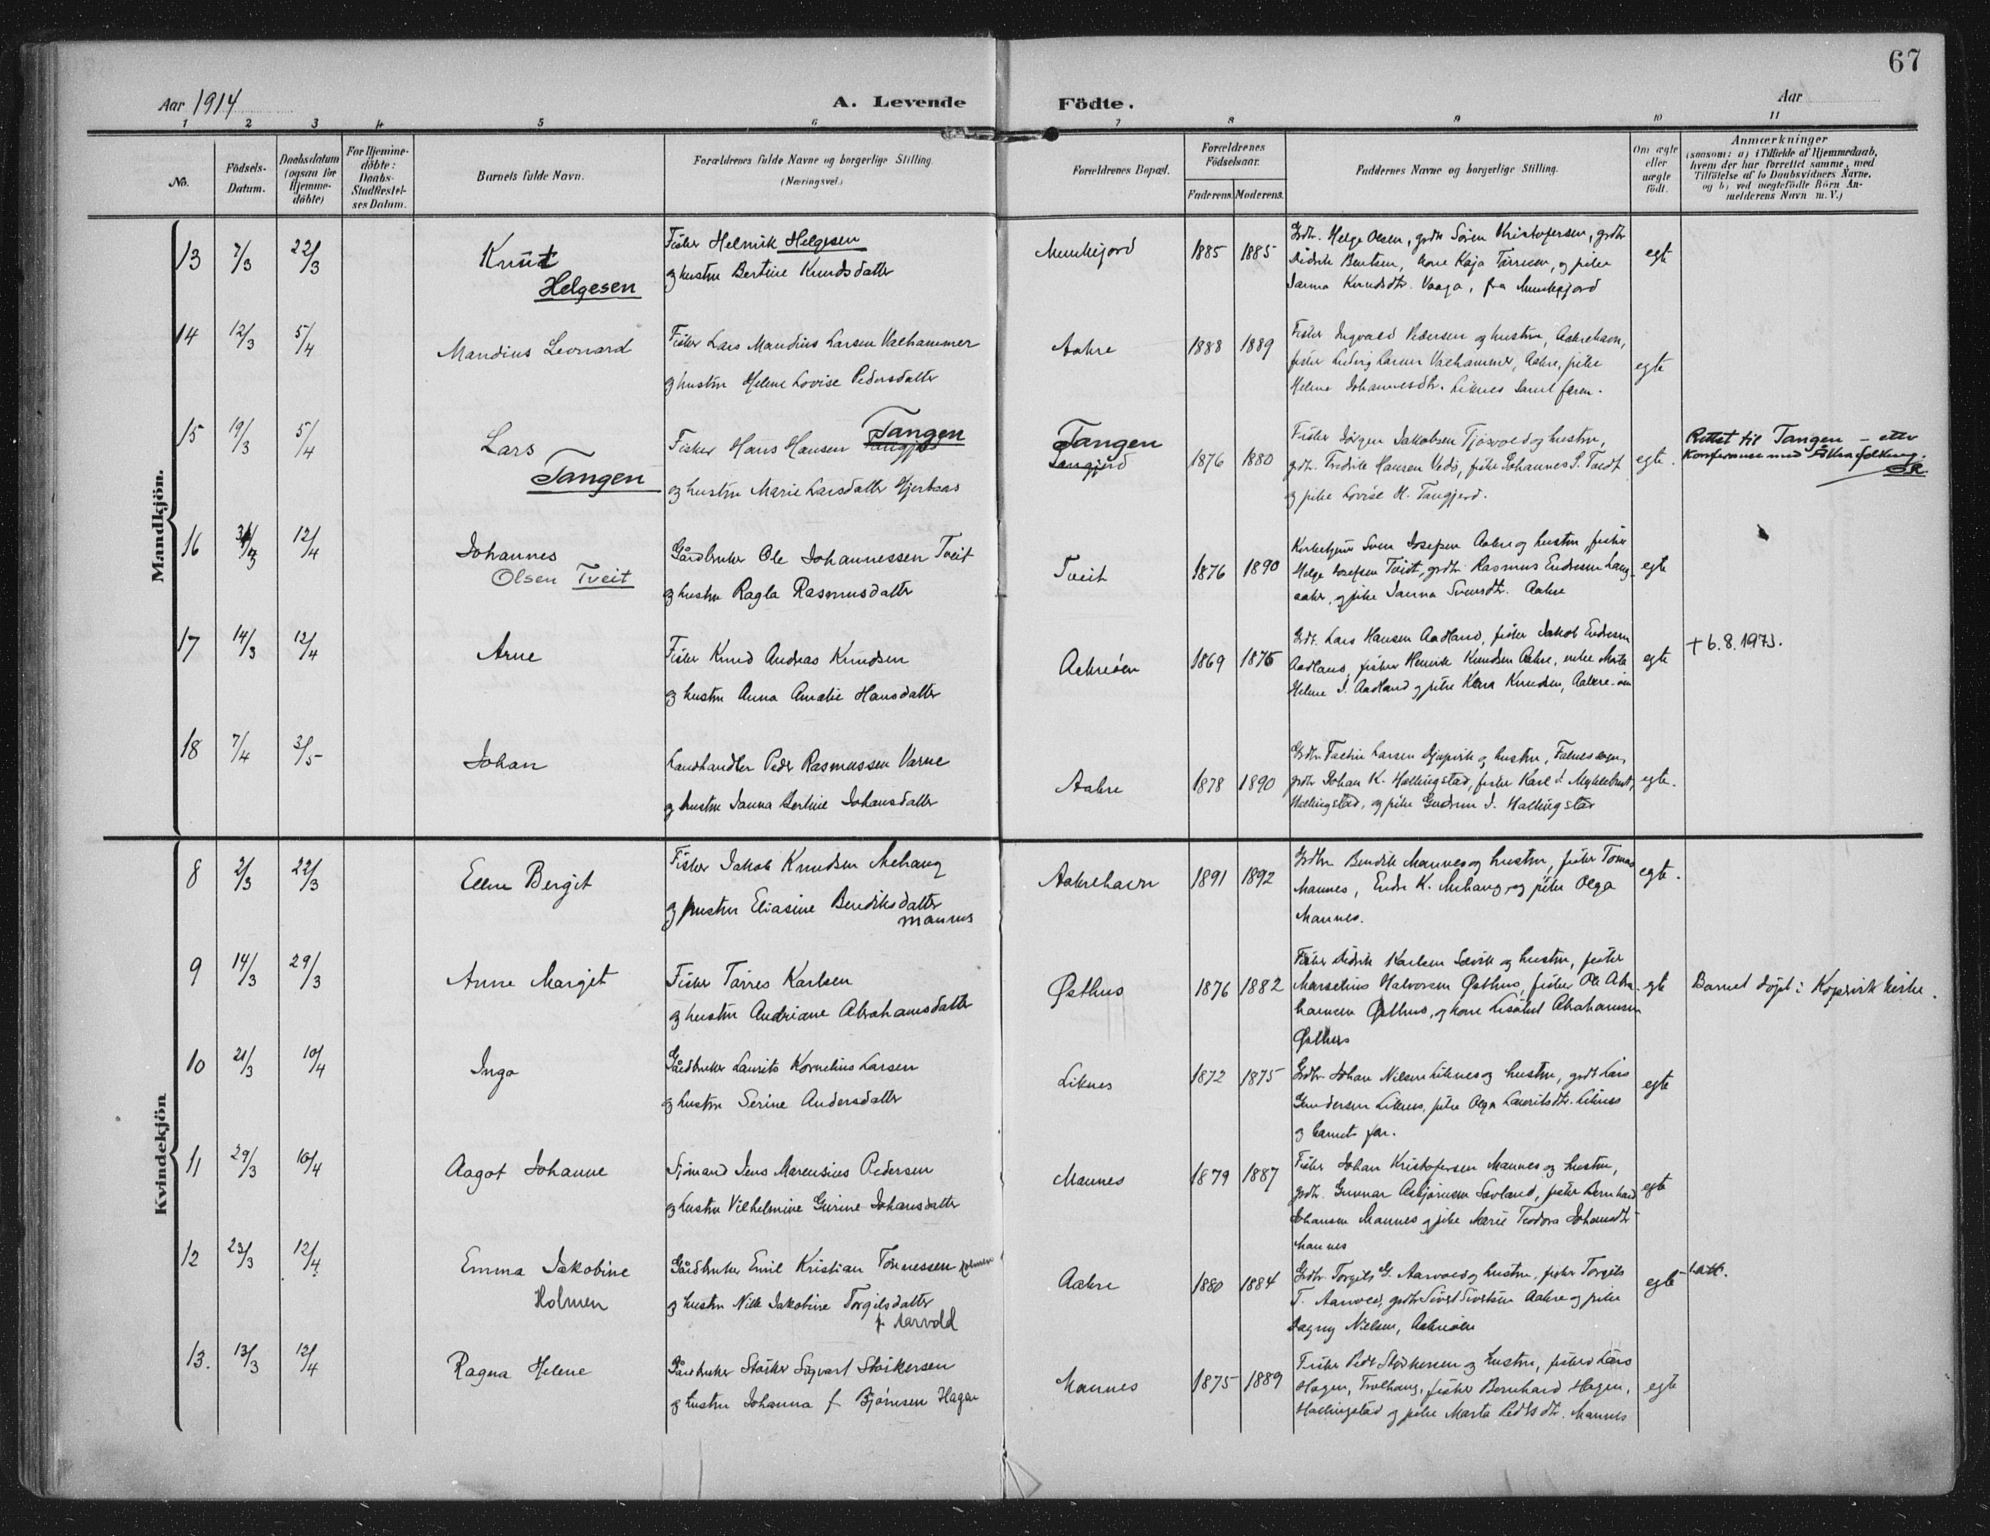 67
Aar 1914
A. Levende
Födte.
Aar
1 2 3 4 5 6 7 8 9 10 11
No.
Födsels-Datum.
Daabsdatum (ogsaa for Hjemme-döbte)
For Hjemme-döbte: Daabs-Stadfæstel-ses Datum.
Barnets fulde Navn.
Forældrenes fulde Navne og borgerlige Stilling. (Næringsvei.)
Forældrenes Bopæl.
Forældrenes Födselsaar.
Faderens. Moderens.
Faddernes Navne og borgerlige Stilling.
Om ægte eller uægte födt.
Anmærkninger
(saasom: a) i Tilfælde af Hjemmedaab, hvem der har forrettet samme, med Tilföielse af to Daabsvidners Navne, og b) ved uægtefödte Börn An-melderens Navn m. V.)
Mandkjön.
13 7/3 22/3 Knut Fisker Helmik Helgesen Munkejord 1885 1885 Grdbr. Helge Olsen, grdbr Sören Kristofersen, grdbr egte
Helgesen og hustru Bertine Knudsdatter Didrik Bentsen, kone Kaja Tørresen, og pike
Janna Knudsdtr. Vaaga, fra Munkejord
14 12/3 5/4 Mandius Leonard Fisker Lars Mandius Larsen Vaehammer Aakre 1888 1889 Fisker Ingvald Pedersen og hustru, Aakrehavn, egte
og hustru Helene Lovise Pedersdatter fisker Ludvig Larsen Vaehammer, Aakre, pike
Helene Johannesdtr. Liknes samt faren.
15 19/3 5/4 Lars Fisker Hans Hansen Tangen Tangen 1876 1880 Fisker Jörgen Jakobsen Tjösvold og hustru, egte. Rettet til Tangen – etter
Tangen og hustru Marie Larsdatter Tangjerd grdbr. Fredrik Hansen Vedö, pike Johannes S. Tveit Konferanse med
og pike Lovise H. Tangjerd.
16 12/4 Johannes Gårdbruker Ole Johannessen Tveit Tveit 1876 1890 Sven Josefsen Aakre og hustru, fisker egte
Olsen Tveit og hustru Ragla Rasmusdatter Helge Josefsen Tveit, grdbr Rasmus Endresen Lang-
aaker, og pike Janna Svensdtr. Aakre
17 14/3 12/4 Arne Fisker Knud Andreas Knudsen Aakreöen 1869 1875 Grdbr. Lars Hansen Aadland, fisker Jakob Endresen egte + 6.8.1973.
og hustru Anna Amalie Hansdatter Aadland, fisker Henrik Knudsen Aakre, enke Marta
Helene J. Aadland og pike Klara Knudsen, Aakre-öen
18 7/4 3/5 Johan Landhandler Peder Rasmussen Varne Aakre 1878 1890 Larsen Djupvik og hustru, Falnes sogn, egte.
og hustru Janna Bertine Johansdatter grdbr Johan K. Hallingstad, fisker Karl J. Myklebust,
Hallingstad, og pike Gudrun J. Hallingstad
Kvindekjön
8 2/3 22/3 Ellen Bergit Fisker Jakob Knudsen Mehaug Aakrehavn 1891 1892 Grdbr Bendik Mannes og hustru, fisker Tomas egte.
og hustru Eliasine Bendiksdatter Mannes, Endre K. Mehaug, og pike Olga
Mannes Mannes.
9 14/3 29/3 Anne Margit Fisker Tørres Karlsen Østhus 1876 1882 Fisker Didrik Karlsen Sævik og hustru, fisker egte Barnet döpt i Kopervik kirke.
og hustru Andriane Abrahamsdatter Marselius Halvorsen Østhus, fisker Ole Abra-
hamsen Østhus, og kone Lisabet Abrahamsen
Østhus
10 21/3 10/4 Inga Gårdbruker Laurits Kornelius Larsen Liknes 1872 1875 Grdbr. Johan Nilsen Liknes og hustru, grdbr Lars egte
og hustru Serine Andersdatter Gundersen Liknes, pike Olga Lauritsdtr. Liknes
og barnets far.
11 29/3 10/4 Aagot Johanne Sjömand Jens Marensius Pedersen Mannes 1879 1887 Fisker Johan Kristofersen Mannes og hustru, egte
og hustru Vilhelmine Gurine Johansdatter grdbr. Gunnar Asbjörnsen Sævland, fisker Bernhard
Johansen Mannes og pike Marie Teodora Johansdtr
Mannes
12 23/3 12/4 Emma Jakobine Gårdbruker Emil Kristian Tönnessen Holmen Aakre 1880 1884 Grdbr Torgils G. Aarvold og hustru, fisker Torgils egte att.
Holmen og hustru Nille Jakobine Torgilsdatter T. Aarvold, grdbr Sivert Sivertsen Aakre og pike
f. Aarvold Dagny Nielsen, Aakreöen
13. 13/3 12/4 Ragna Helene Gårdbruker Staiker Sigvart Staikersen Mannes 1875 1889 Fisker Peder Staikersen og hustru, fisker Lars egte
og hustru Johanna f. Bjørnsen Hagen Hagen, Trolhaug, fisker Bernhard Hagen,
Hallingstad og pike Marta Pedersdtr. Mannes